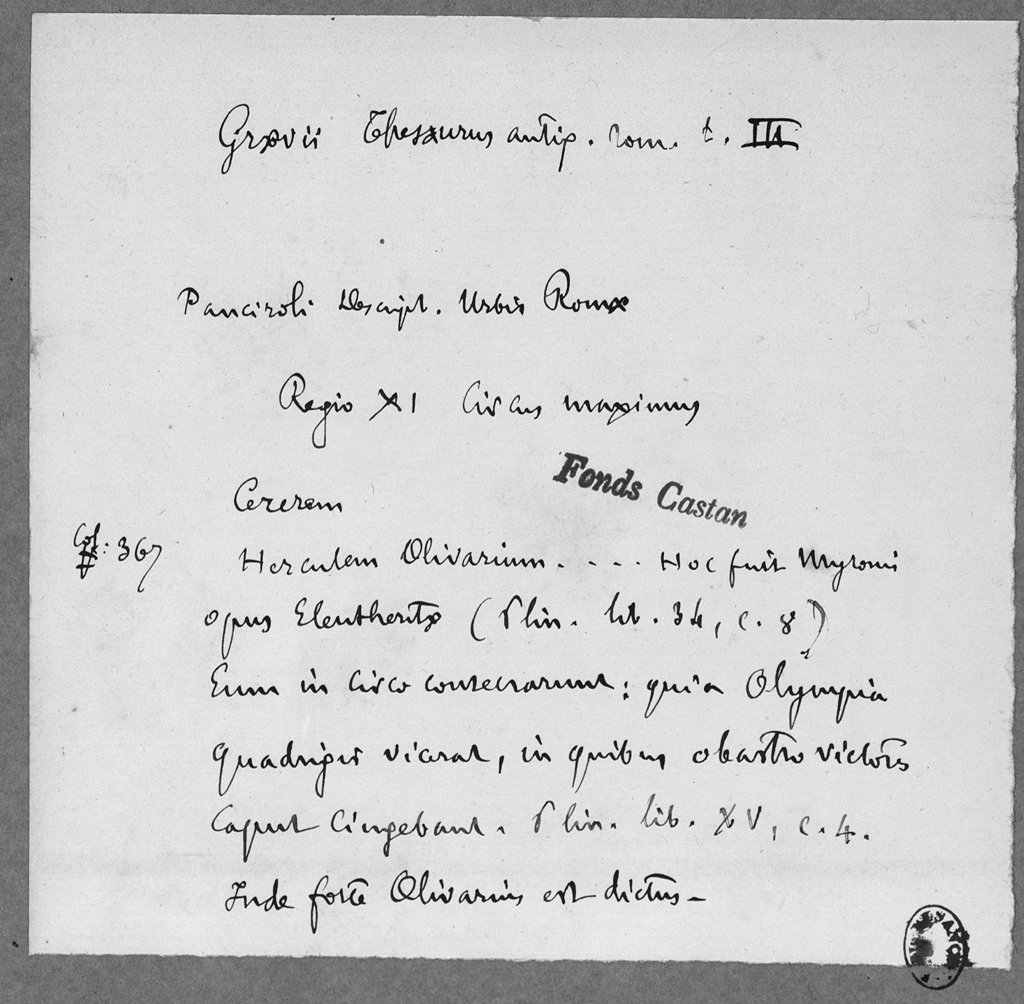 Grævii Thesaurus antiq. rom. t. III
Panciroli Descript. Urbis Romæ
Regio XI Circus maximus
Fonds Castan
Cererem
Col: 367
Herculem Olivarium. . . . Hoc fuit Myronis
opus Eleutheritæ (Plin. lib. 34, c. 8)
Eum in circo consecrarunt: quia Olympia
quadrigis vicerat, in quibus victoris
caput cingebant. Plin. lib. XV, c. 4.
Inde forte Olivarius est dictus –